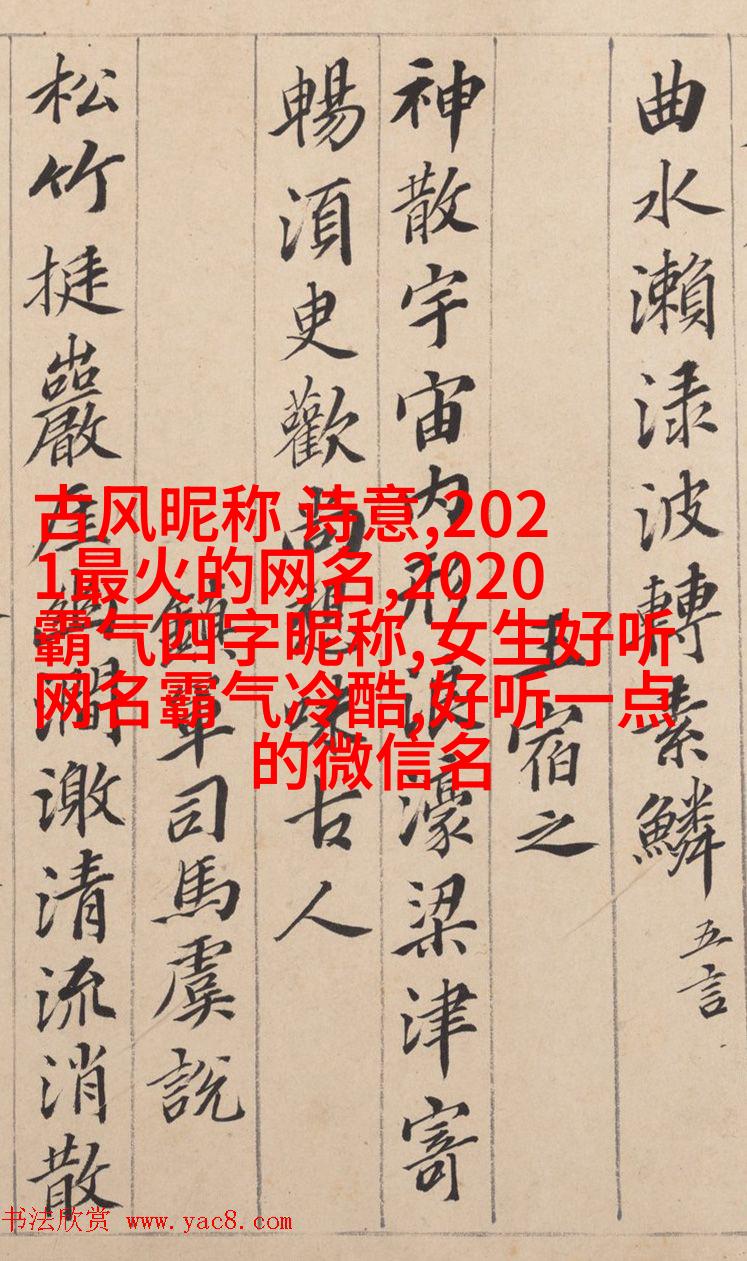 曲水瀨淥波轉素鱗 五言
王宿之
神散宇宙內形浪濠梁津寄
暢須臾歡尚想味古人
鎮軍司馬虞說
松竹挺巖崖幽澗激清流消散
古风昵称 诗意,202
1最火的网名,2020
霸气四字昵称,女生好听
网名霸气冷酷,好听一点
的微信名
书法欣赏 www.yac8.com